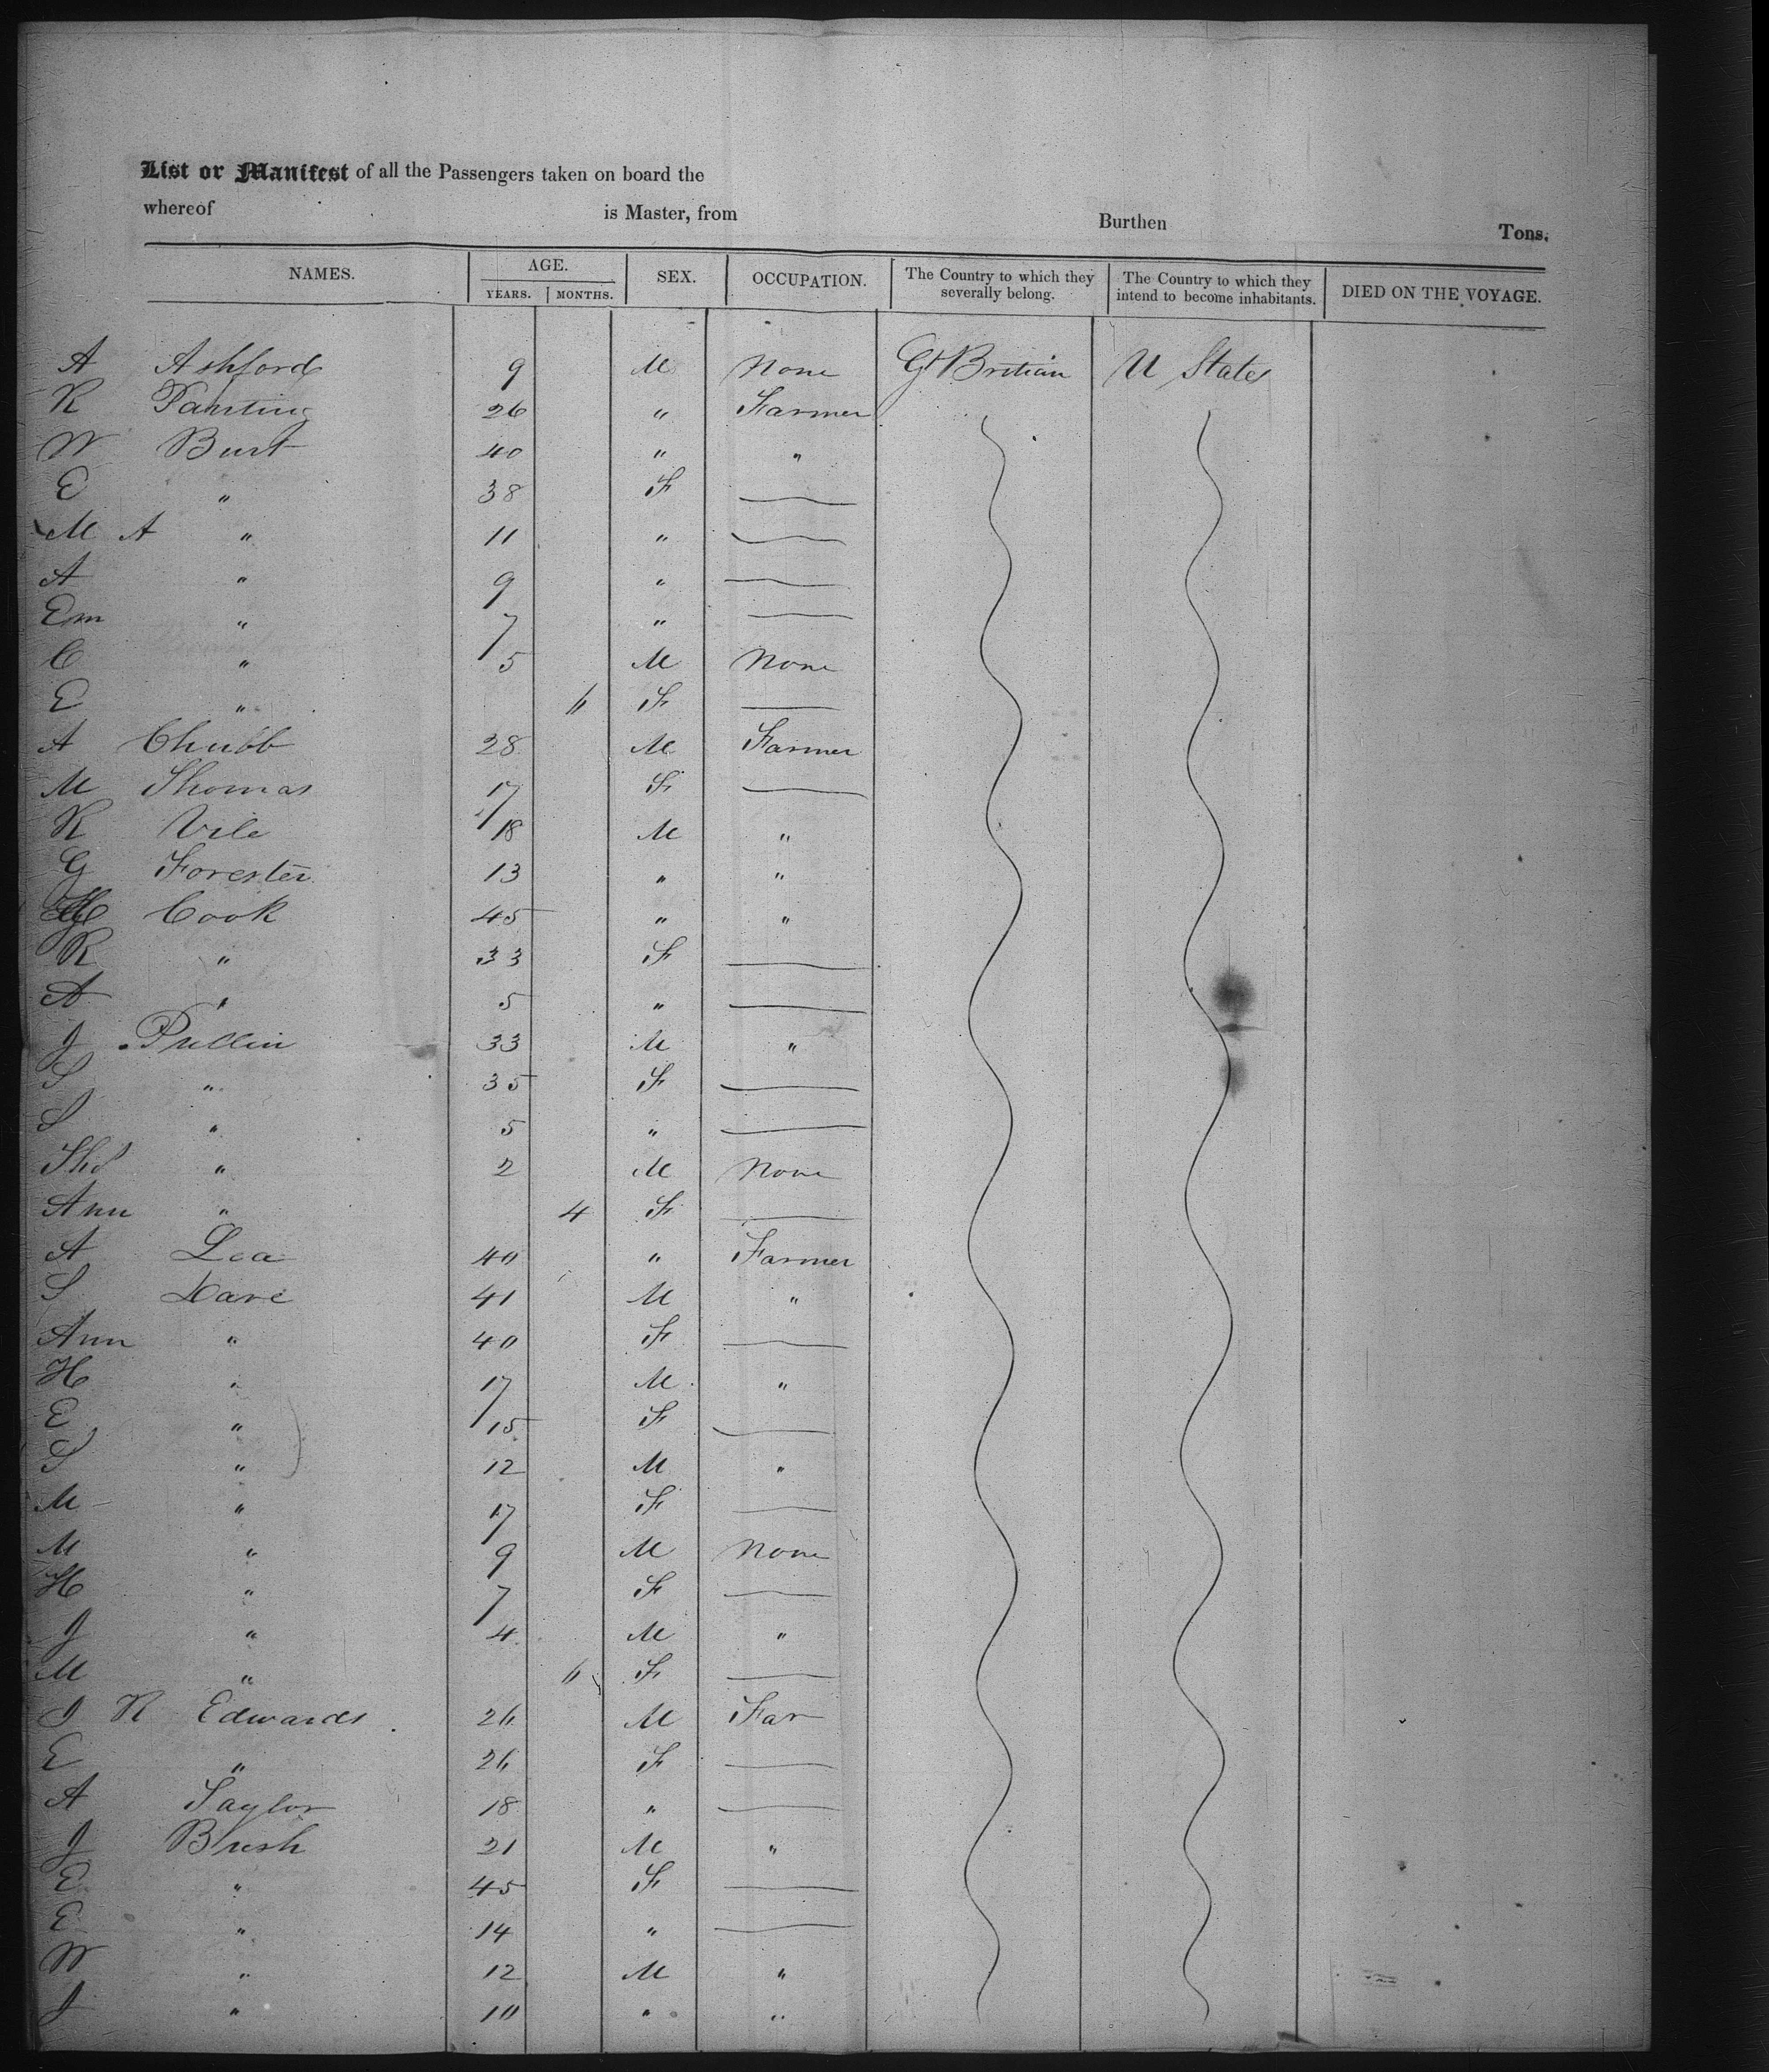 List or Manifest of all the Passengers taken on board the
whereof is Master, from Burthen Tons.
NAMES. AGE. SEX. OCCUPATION. The Country to which they severally belong. The Country to which they intend to become inhabitants. DIED ON THE VOYAGE.
YEARS. MONTHS.
A Ashford 9 M None Gt Britian U States
R Panting 26 " Farmer
W Burt 40 " "
E " 38 F
M A " 11 "
A " 9 "
Em " 7 "
C " 5 M None
E " 6 F
A Chubb 28 M Farmer
M Thomas 17 F
R Vile 18 M "
G Forester 13 " "
Cook 45 " "
R " 33 F
A " 5 "
J Pullin 33 M "
S " 35 F
S " 5 "
Thos " 2 M None
Ann " 4 F
A Lea 40 " Farmer
S Dare 41 M "
Ann " 40 F
H " 17 M "
E " 15 F
S " 12 M "
M " 17 F
M " 9 M None
H " 7 F
J " 4 M "
M " 6 F
J R Edwards 26 M Far
E " 26 F
A Taylor 18 "
J Brush 21 M "
E " 45 F
E " 14 "
W " 12 M "
J " 10 " "